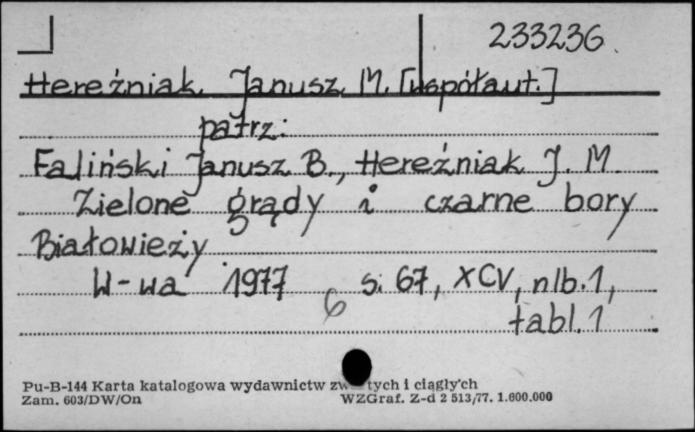 233236
Hereźniak Janusz M. [współaut.]
patrz:
Faliński Janusz B., Hereźniak J. M.
Zielone grądy i czarne bory
Białowieży
W-wa 1977 s. 67, XCV, nlb. 1,
6 tabl. 1
Pu-B-144 Karta katalogowa wydawnictw zw tych i ciągłych
Zam. 603/DW/On WZGraf. Z-d 2 513/77. 1.600.000